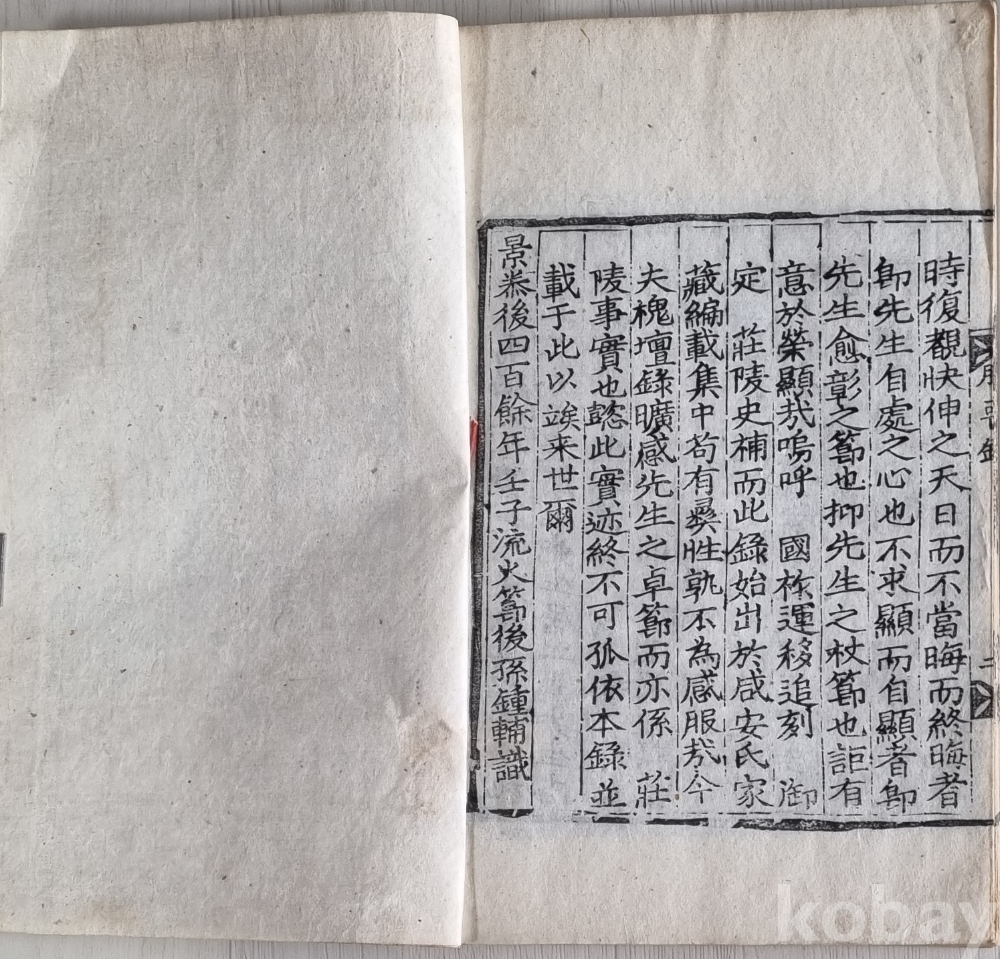 時復覩快伸之天日而不當晦而終晦者
卽先生自處之心也不求顯而自顯者卽
先生愈彰之節也抑先生之杖節也詎有
意於榮顯㢤嗚呼 國祚運移追刻 御
定 莊陵史補而此錄始出於咸安氏家
藏編載集中苟有彛性孰不為感服㢤今
夫槐壇錄曠感先生之卓節而亦係 莊
陵事實也懿此實迹終不可孤依本錄並
載于此以竢来世爾
景泰後四百餘年壬子流火節後孫鍾輔識
二
kobay